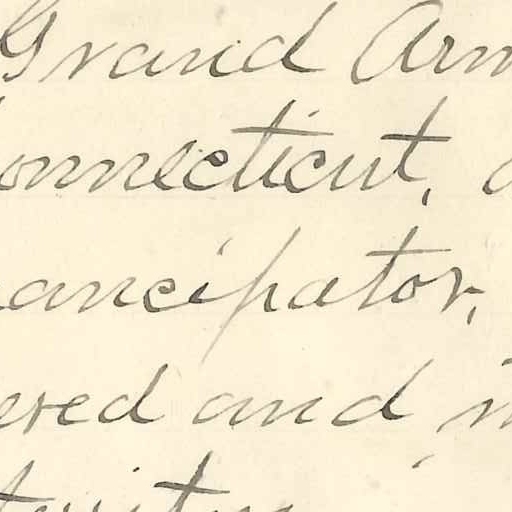 Grand Arm
onnecticut,
ancipator,
ered and